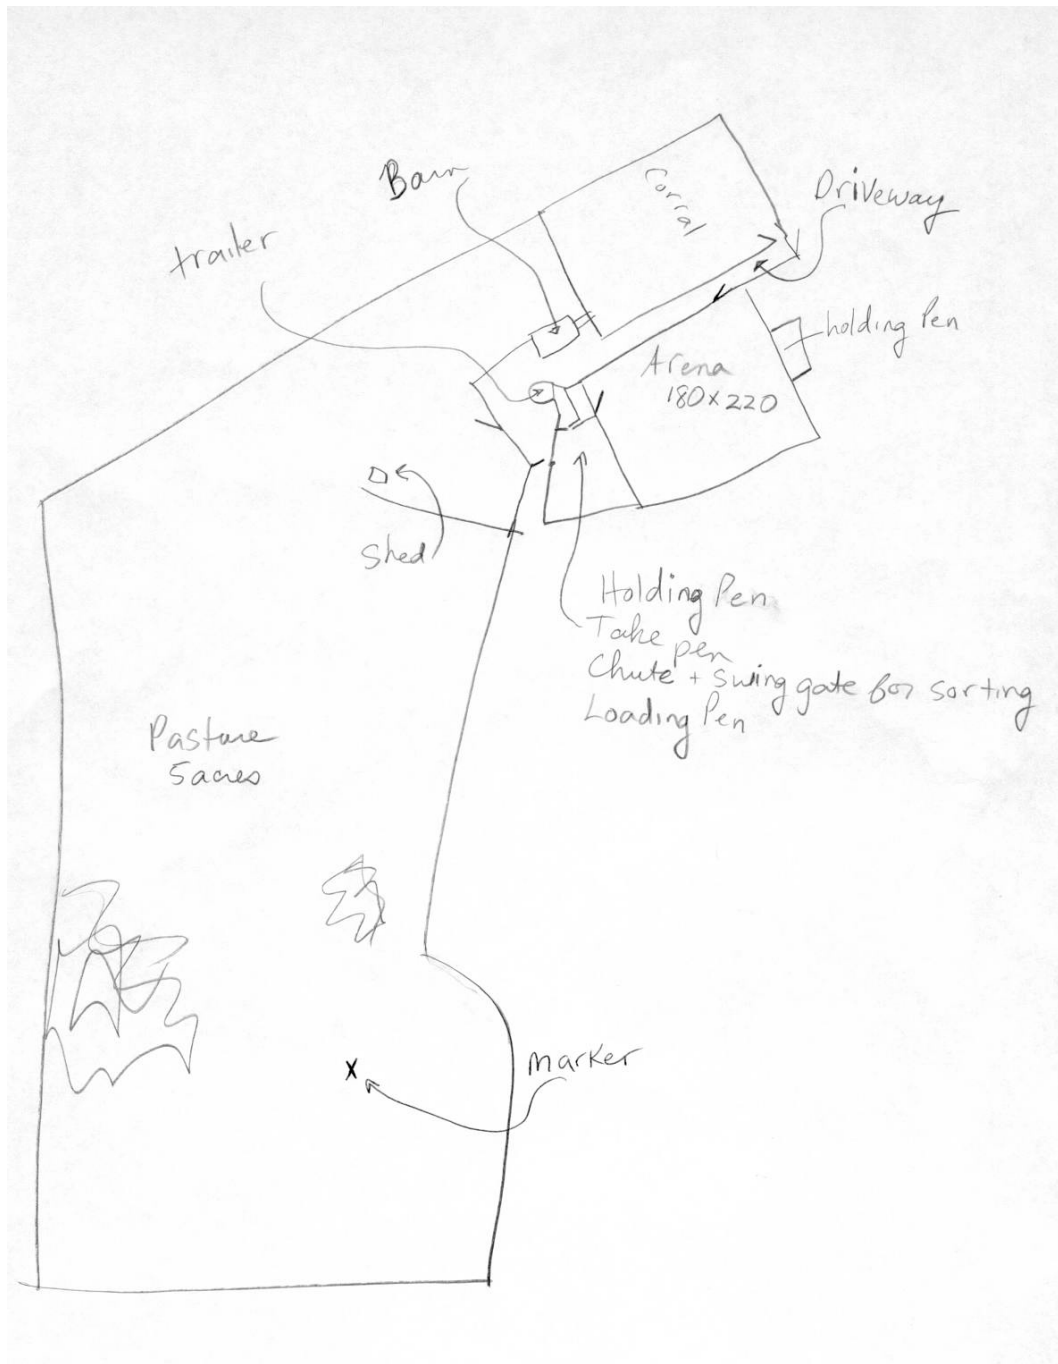 Barn
Corral
Driveway
trailer
holding Pen
Arena
180x220
Shed
Holding Pen
Take pen
Chute + Swing gate for sorting
Loading Pen
Pasture
5 acres
X
marker